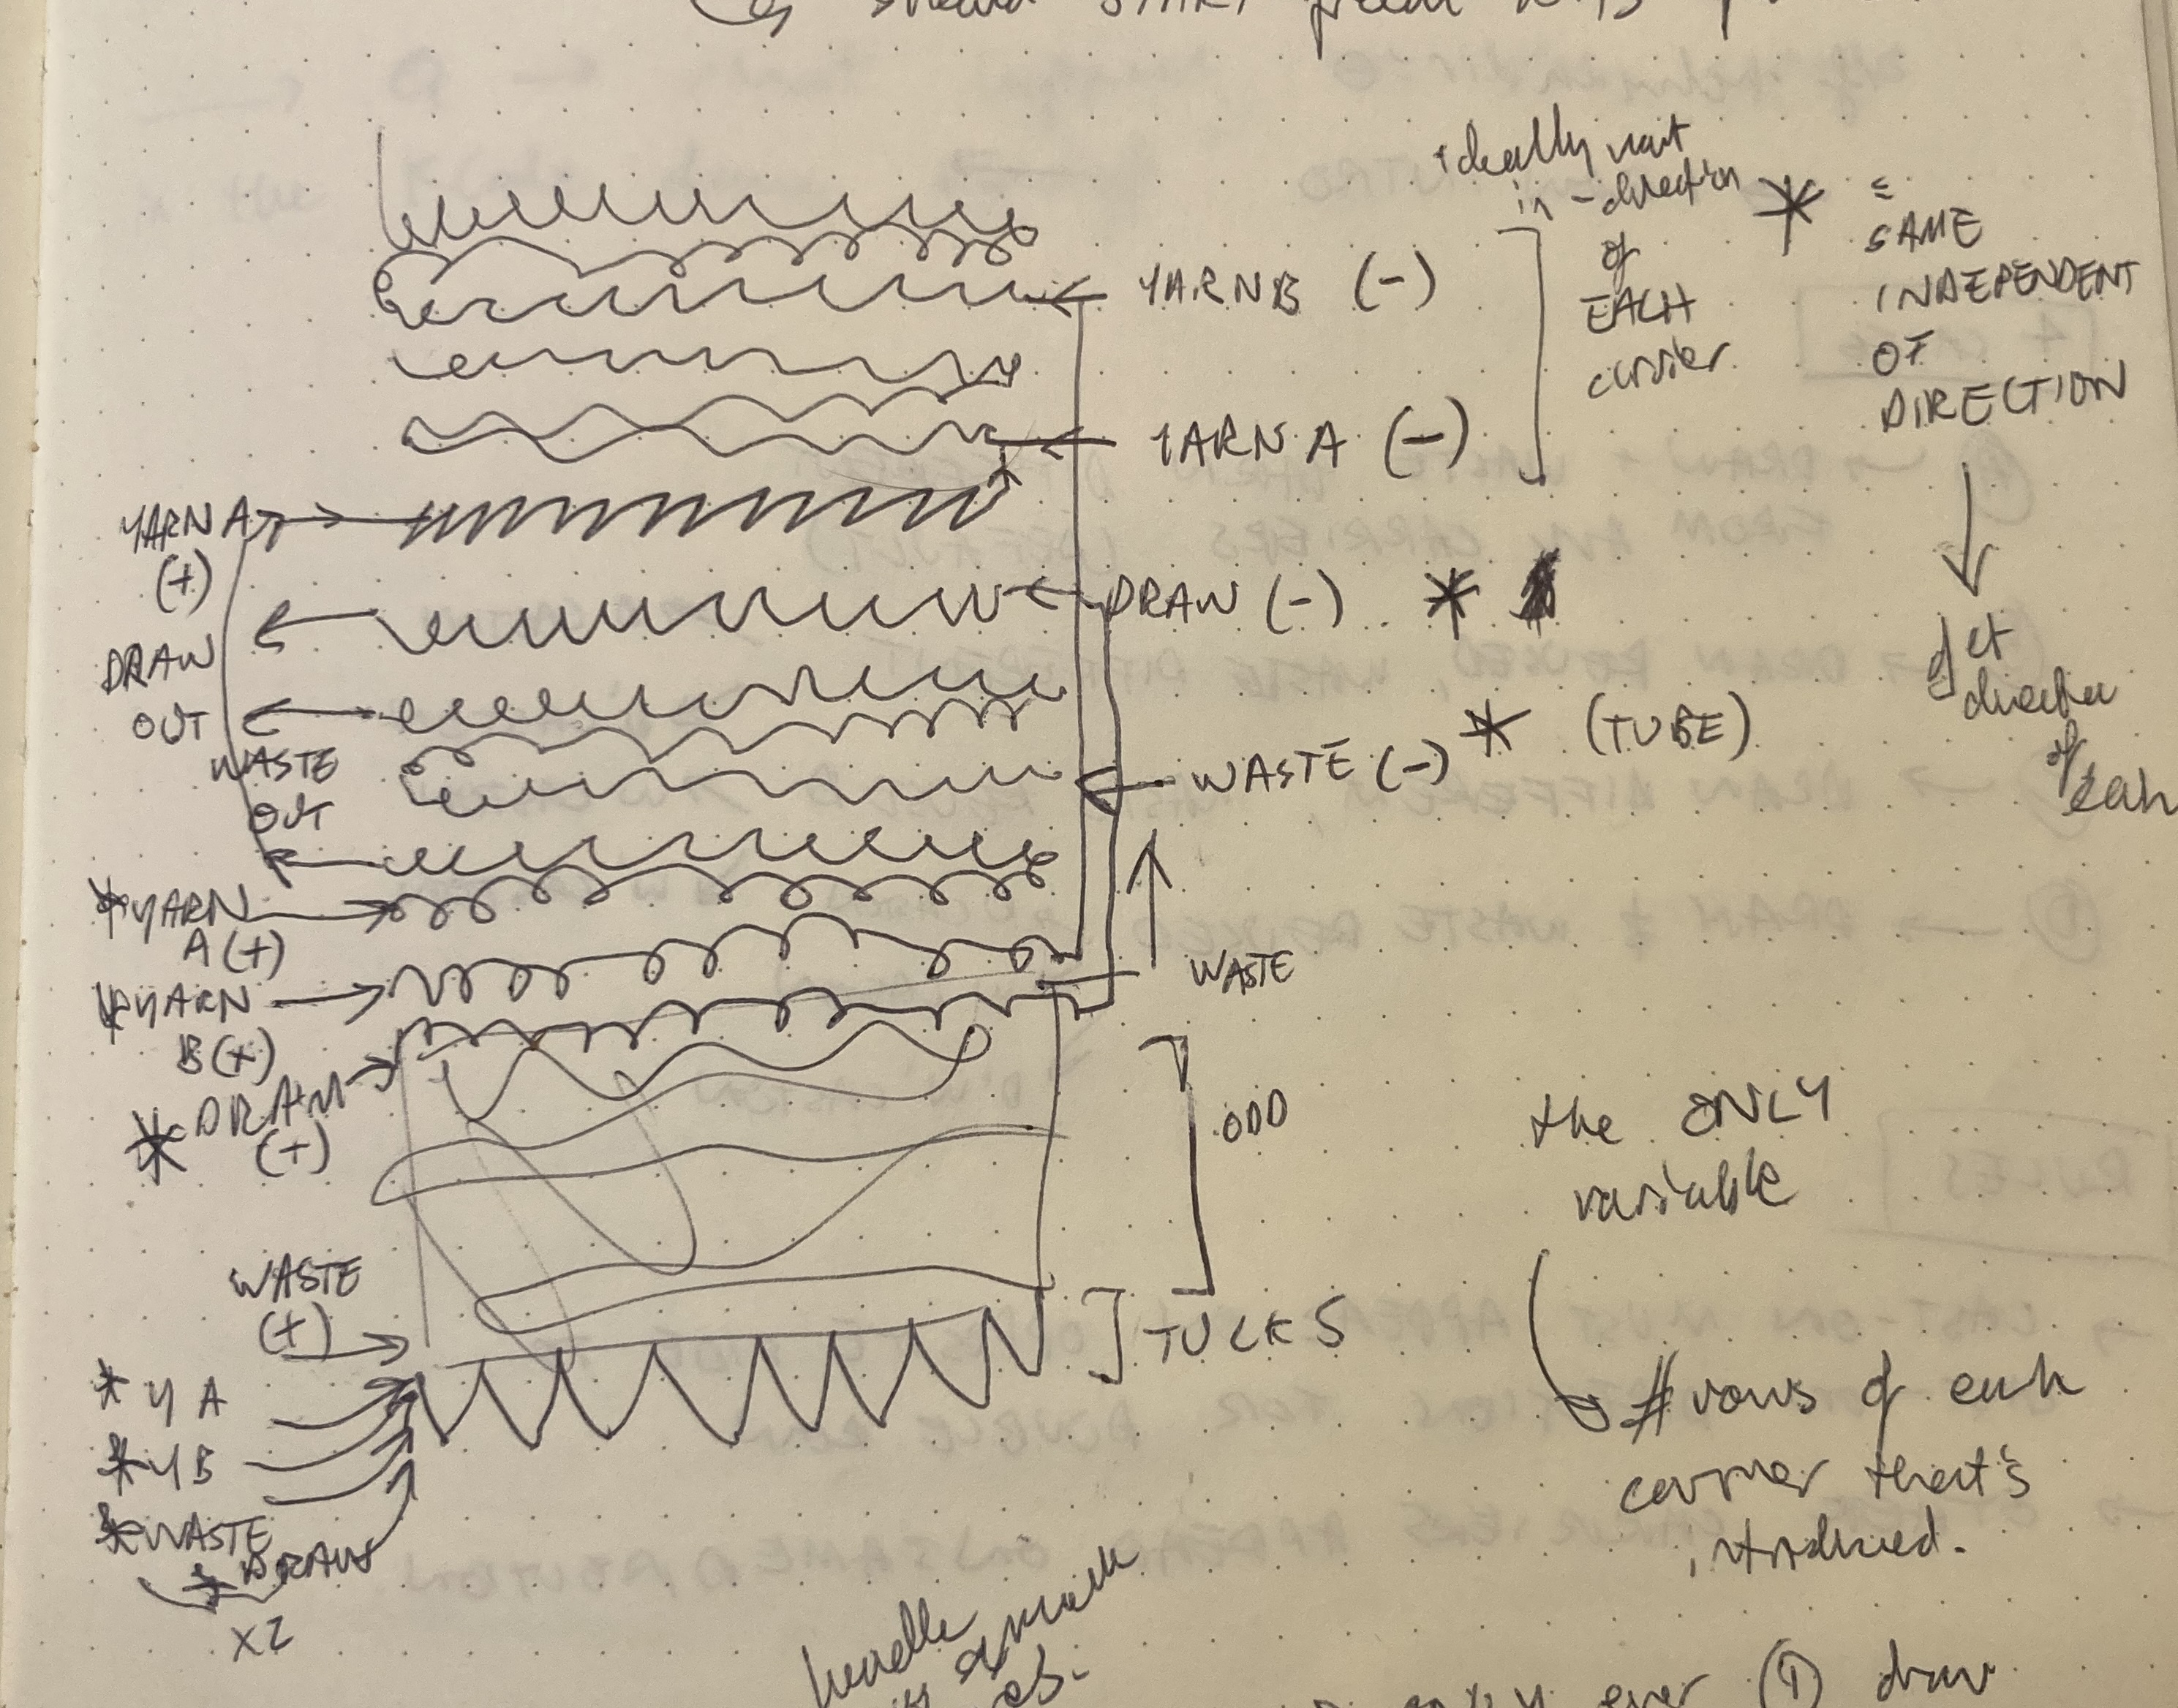 START
ideally want
in-direction
of
EACH
carrier
*
SAME
INDEPENDENT
OF
DIRECTION
YARN B (-)
YARN A (-)
YARN A
(+)
DRAW (-) *
DRAW
OUT
det
direction
of
each
WASTE (-) * (TUBE)
WASTE
OUT
*YARN
A (+)
*YARN
B (+)
WASTE
*DRAW
(+)
ODD
the ONLY
variable
WASTE
(+)
TUCKS
# rows of each
carrier that's
introduced.
* Y A
* Y B
*WASTE
* DRAW
X2
handle
ever 1 draw